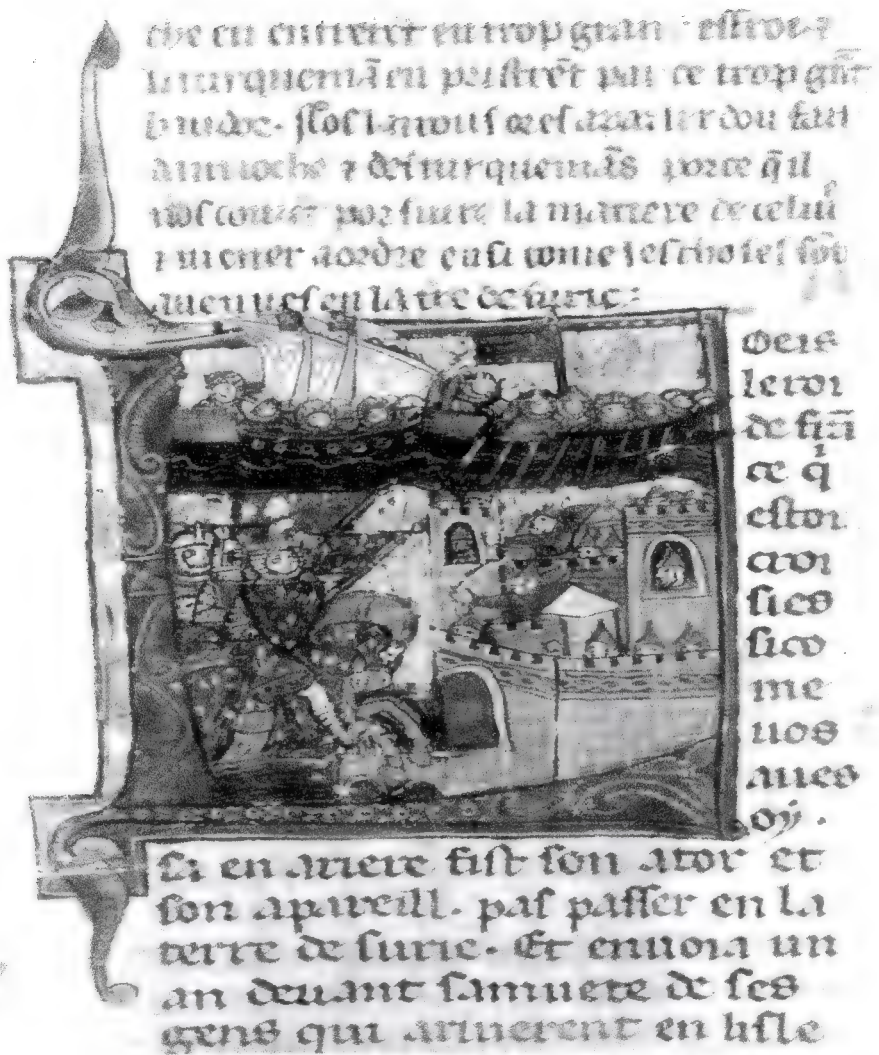 che en entrerēt en trop gran effroi ⁊
turquemā en pristrēt par ce trop grāt
baudor. Nos lairons ores a parler dou fait
dantioche ⁊ des turquemās porce q̄ il
nos couiēt porsiure la matiere de celui
⁊ mener a ordre ensi come les choses sōt
auenues en la tře de surie:
Oeis
le roi
de frā
ce qⁱ
estoi
croi
sies
si co
me
uos
aues
oÿ.
sa en ariere fist son ator et
son apareill. pas passer en la
terre de surie. Et enuoia un
an deuant sa muete de ses
gens qui ariuerent en lisle